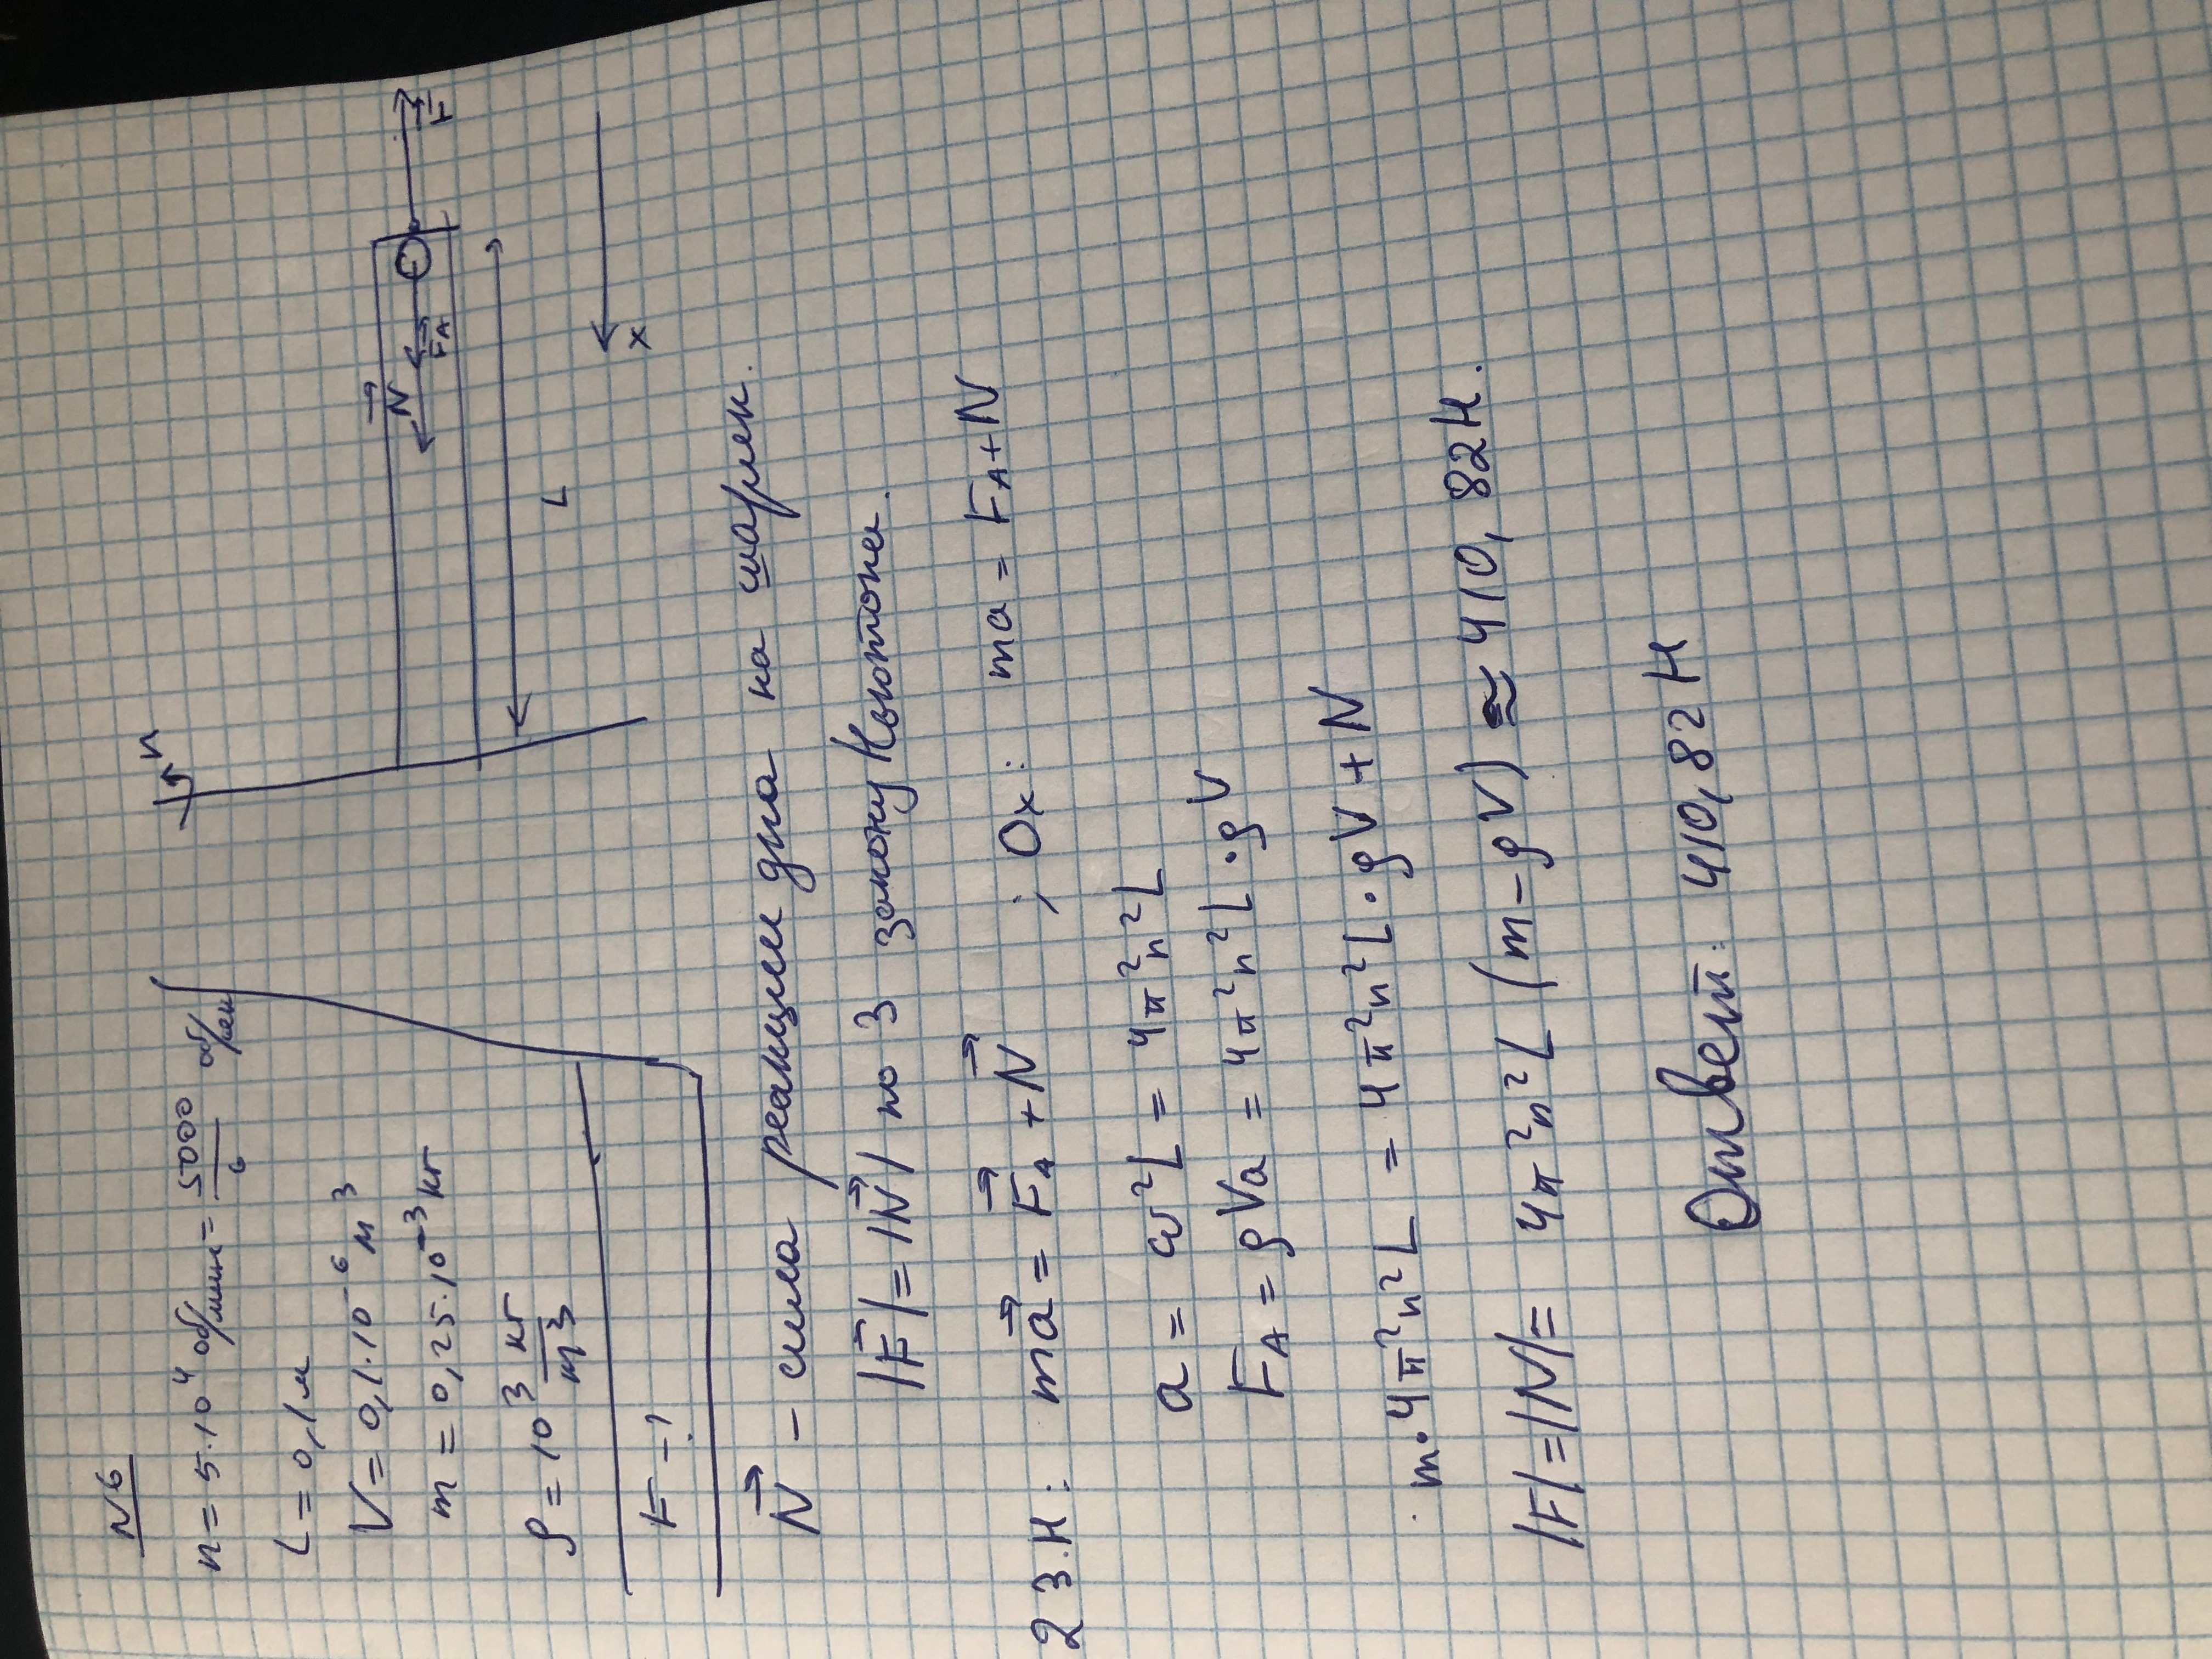 N6
n = 5·10⁴ об/мин = 5000/6 об/сек
L = 0,1 м
V = 0,1·10⁻⁶ м³
m = 0,25·10⁻³ кг
ρ = 10³ кг/m³
F - ?
n
N⃗
F⃗A
F⃗
L
x
N⃗ – сила реакции дна на шарик.
|F⃗| = |N⃗| по 3 закону Ньютона.
2 З.Н.: ma⃗ = F⃗A + N⃗ ; Ox: ma = FA + N
a = ω²L = 4π²n²L
FA = ρVa = 4π²n²L·ρV
m·4π²n²L = 4π²n²L·ρV + N
|F| = |N| = 4π²n²L (m – ρV) ≈ 410,82 Н.
Ответ: 410,82 Н